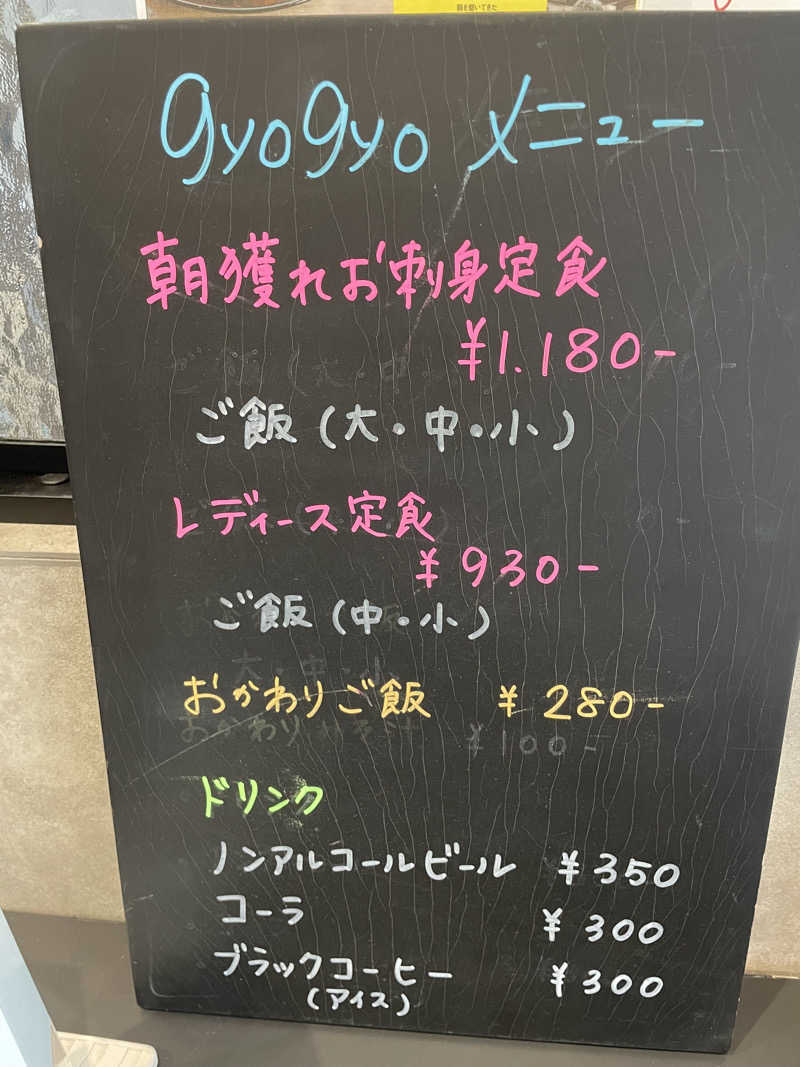 gyogyo メニュー
朝獲れお刺身定食
¥1.180-
ご飯(大・中・小)
レディース定食
¥930-
ご飯(中・小)
おかわりご飯 ¥280-
ドリンク
ノンアルコールビール ¥350
コーラ ¥300
ブラックコーヒー ¥300
(アイス)